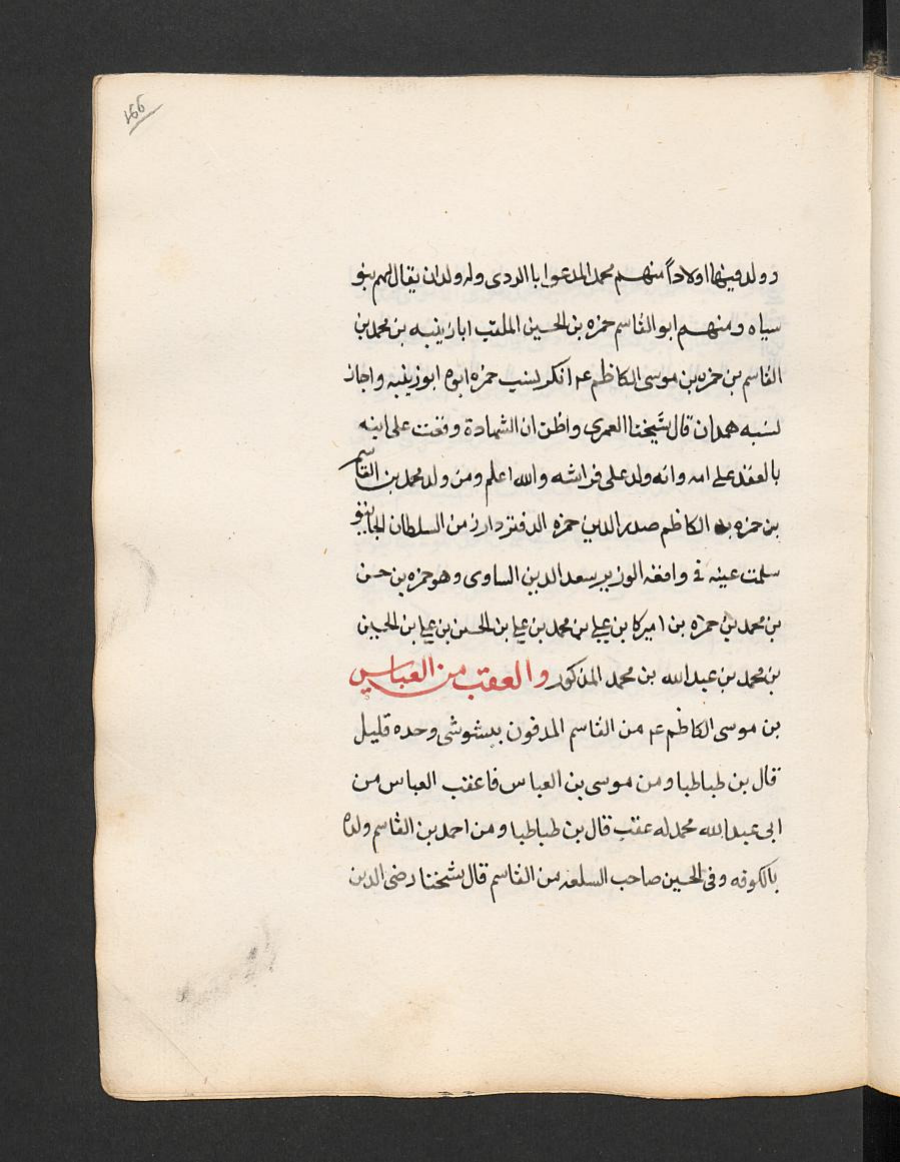 166
وولد فيها اولاداً منهم محمد المدعو ابا الدردى وله ولدان يقال لهم بنو
سياه ومنهم ابو القاسم حمزه بن الحسين الملقب ابا زينبه بن محمد بن
القاسم بن حمزه بن موسى الكاظم عم انكر نسب حمزه ابوه ابو زينبه واجاز
نسبه همدان قال شيخنا العمرى واظن ان الشهادة وقعت على ابيه
بالعقد على امه وانه ولد على فراشه والله اعلم ومن ولد محمد بن القاسم
بن حمزه بن الكاظم صدر الدين حمزه الدفتردار زمن السلطان
سلمت عينه فى واقعه الوزير سعد الدين الساوى وهو حمزه بن حسن
بن محمد بن حمزه بن اميركا بن على بن محمد بن على بن الحسين بن على بن الحسين
بن محمد بن عبد الله بن محمد المذكور والعقب من العباس
بن موسى الكاظم عم من القاسم المدفون بشوشى وحده قليل
قال بن طباطبا ومن موسى بن العباس فاعقب العباس من
ابى عبد الله محمد له عقب قال بن طباطبا ومن احمد بن القاسم ولده
بالكوفه وفى الحسين صاحب السلعه من القاسم قال شيخنا رضى الدين